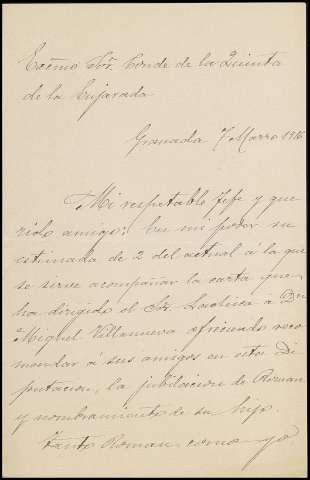 Excmo Sor. Conde de la Quinta
de la Enjarada
Granada 7 Marzo 1916
Mi respetable Jefe y que
rido amigo: En mi poder su
estimada de 2 del actual á la que
se sirve acompañar la carta que
ha dirigido el Sr. á Dn
Miguel Villanueva ofreciendo reco
mendar á sus amigos en esta Di
putacion, la jubilacion de Roman
y nombramiento de su hijo.
Tanto Roman como yo,